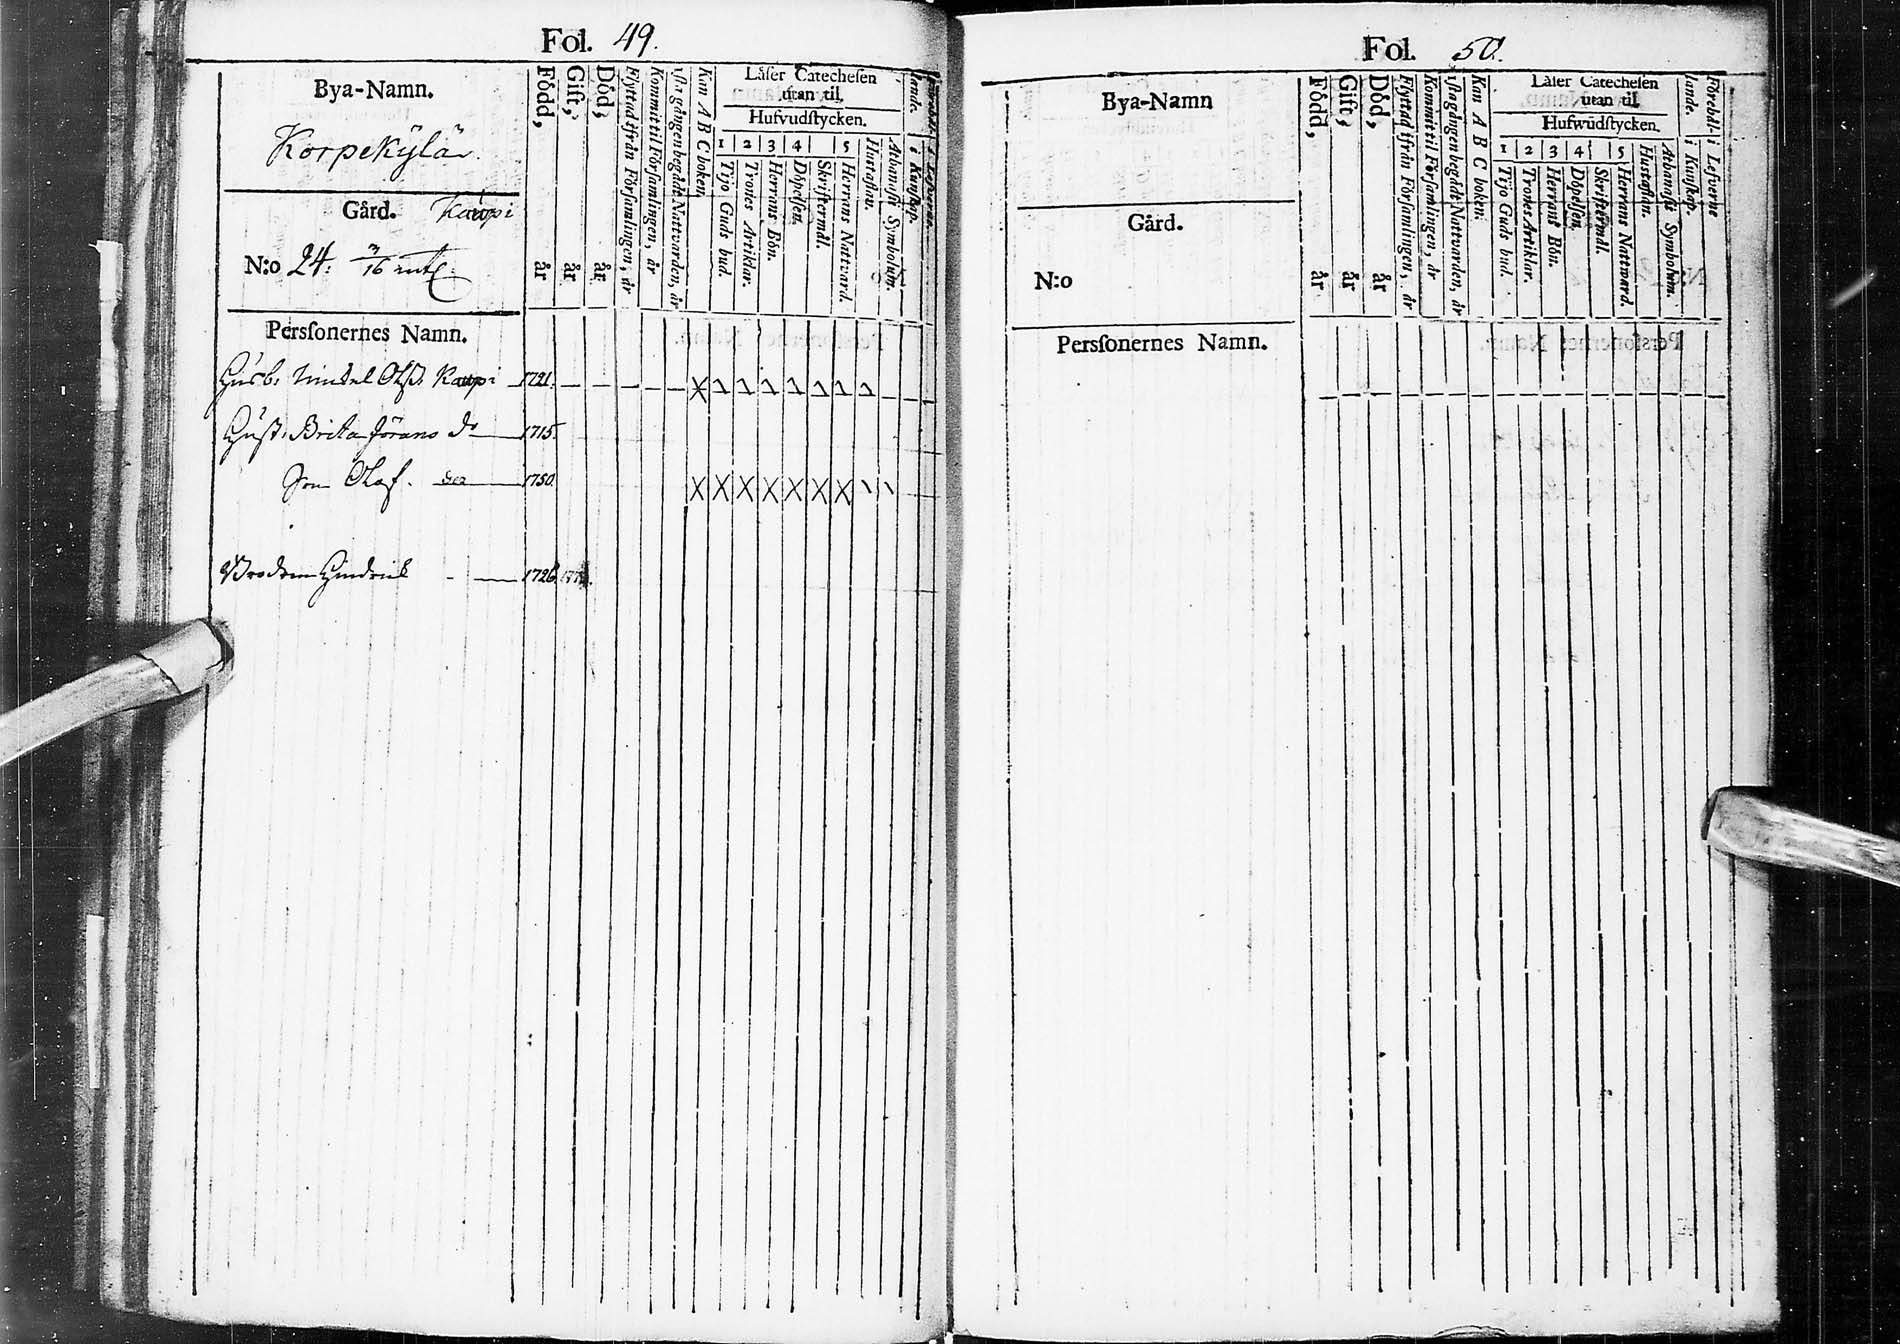 Fol. 49.
Bya-Namn.
Korpekÿlä
Gård. Kaupi
N:o 24. 3/16 mtl
Född, år
Gift, år
Död, år
Flyttad ifrån Församlingen, år
Kommit til Församlingen, år
1sta gången begådt Nattvarden, år
Kan A B C boken,
Låser Catechesen
utan til.
Hufvudstycken.
1 2 3 4 5
Tijo Guds bud.
Trones Artiklar.
Herrans Bön.
Döpelsen.
Skriftermål.
Herrans Nattvard.
Hustaflan.
Athanasii Symbolum.
lande.
i Kunskap.
i Lefverne.
Personernes Namn.
Husb: Olss: Kaupi 1721.
Hust: Brita Jörans do 1715.
Son Olof. 1750.
Brodren Hindrik 1726.
Fol. 50.
Bya-Namn
Gård.
N:o
Född, år
Gift, år
Död, år
Flyttad ifrån Församlingen, år
Kommit til Församlingen, år
1sta gången begådt Nattvarden, år
Kan A B C boken.
Låser Catechesen
utan til.
Hufwudstycken.
1 2 3 4 5
Tijo Guds bud.
Trones Artiklar.
Herrans Bön.
Döpelsen.
Skriftermål.
Herrans Nattward.
Hustaflan.
Athanasii Symbolum.
Förehål-
lande.
i Kunskap.
i Lefverne
Personernes Namn.